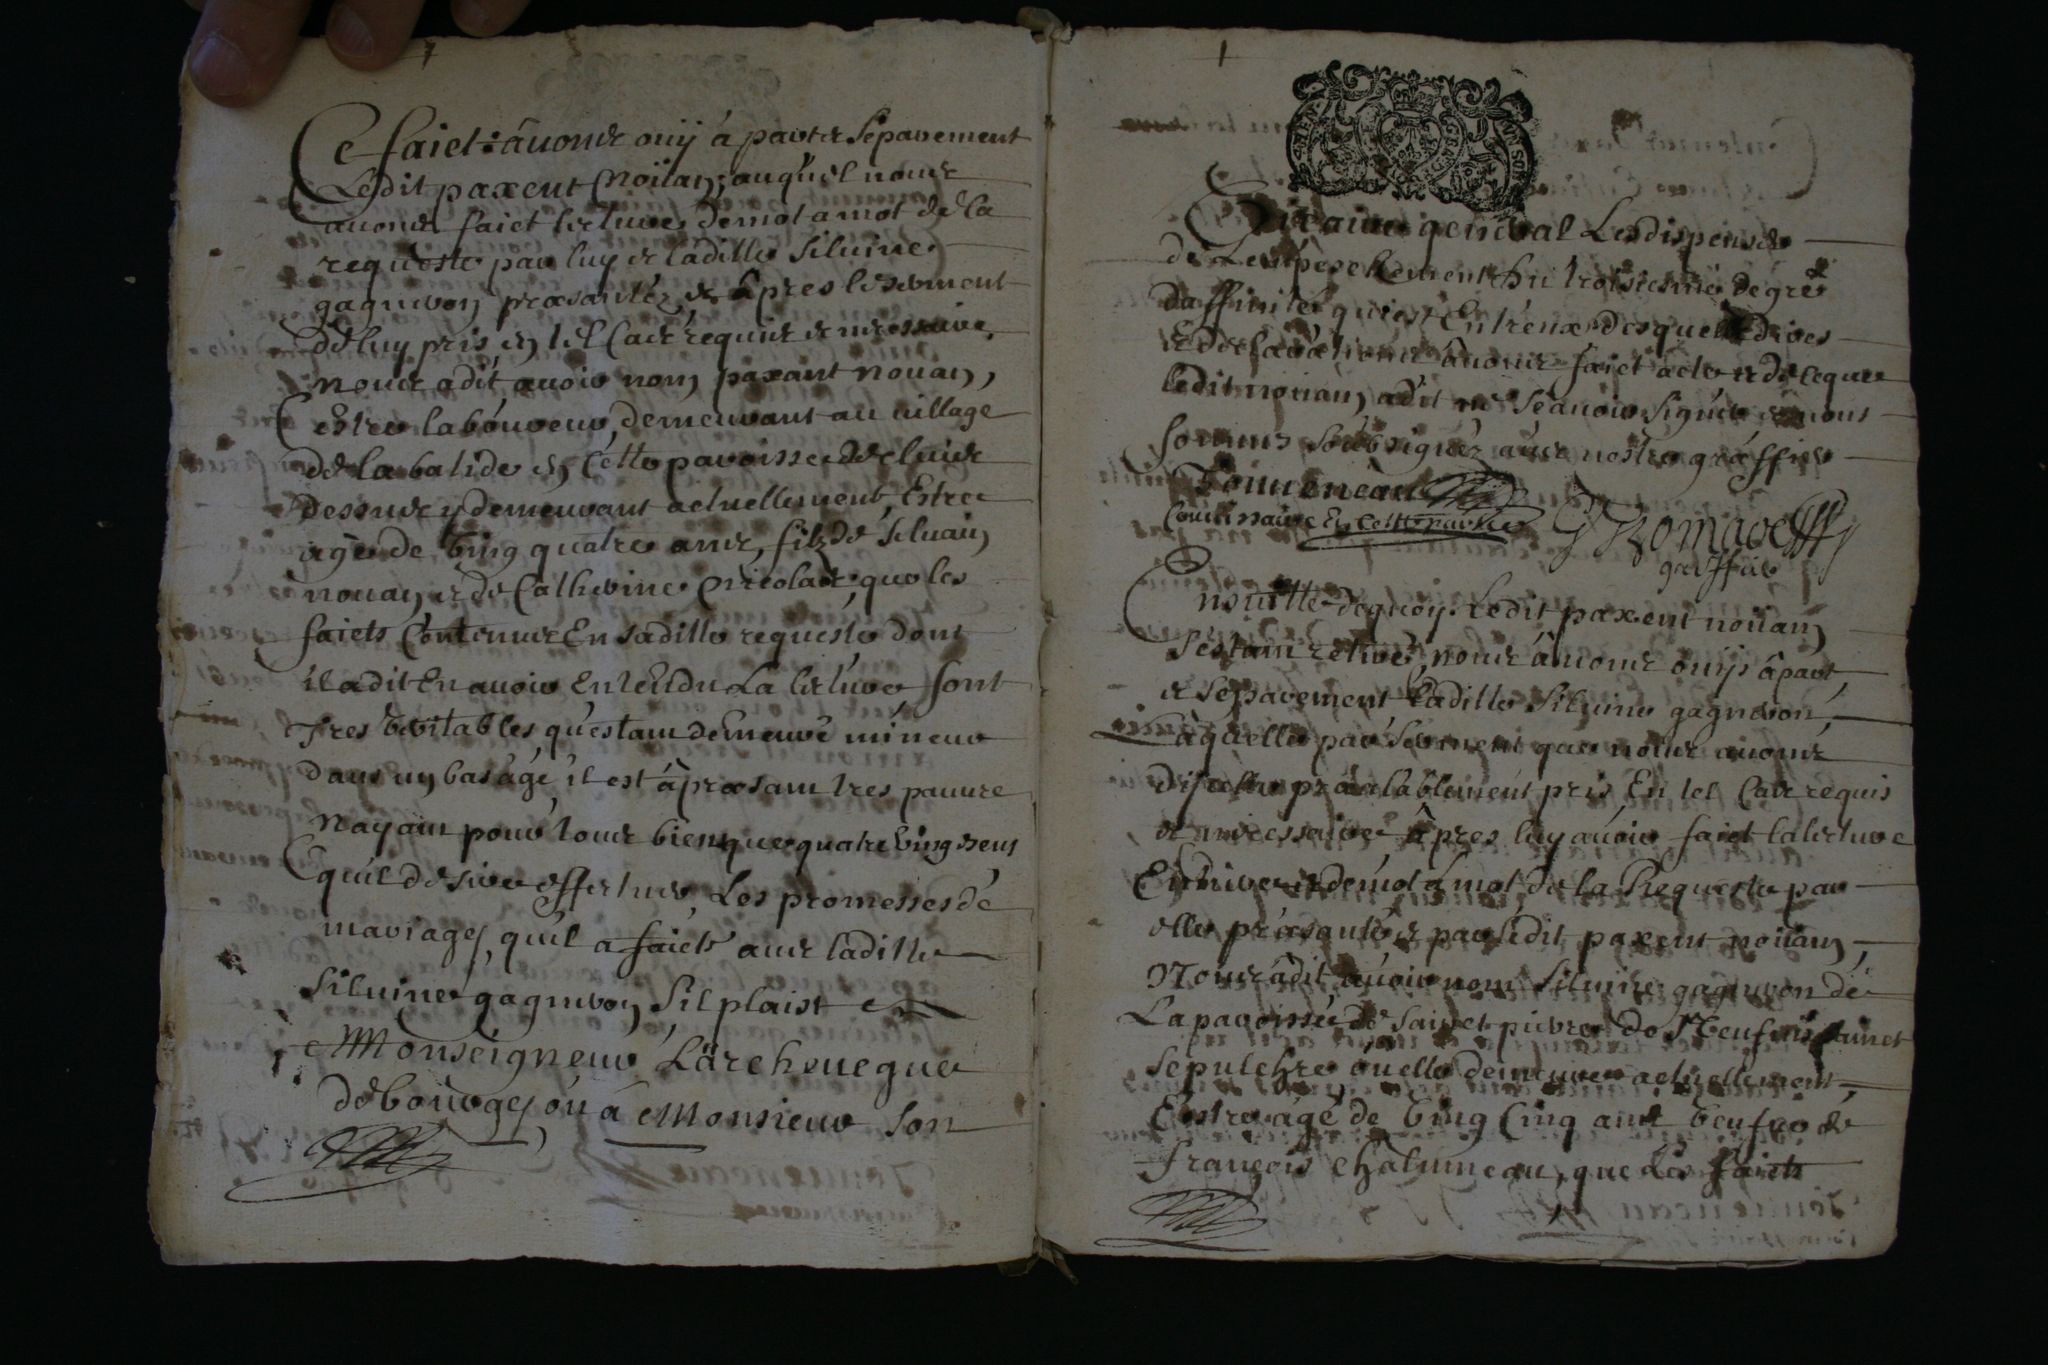 Ce faict avons ouy à part et separement
Ledit paxent Noüan, auquel nous
avons faict lecture de mot a mot de la
requeste par luy et laditte Siluine
gagneron præsantéz et âpres le serment
de luy pris en tel cas requis et necessaire
nous a dit avoir nom paxant nouan,
Estre laboureur, demeurant au uillage
de la balide en Cette paroisse de
dessus y demeurant actuellement, Estre
agé de Ving quatre ans, filz de Siluain
nouan et de Catherine Nicolas, que les
faicts Contenus En saditte requeste dont
il a dit En avoir Entendu La lecture sont
Tres Veritables qu'estant demeuré mineur
dans un bas âge il est à præsant tres pauure
Nayant pour tous bien que quatre Ving
quil desire effectuer Les promesses de
mariage, quil a faicts auec laditte
Siluine gagneron Sil plaist a
Monseigneur Larcheueque
de bourges ou à Monsieur Son
Vicaire general Les dispenser
de Lempeschement du troisiesme degré
daffinité qui est Entr'eux desquelles dires
et declarations âvons faict acte et de ce que
ledit nouan, a dit ne Scauoir Signer et nous
sommes Soubsignéz avec nostre gréffier
Commissaire En cette partie
greffier
Ensuitte dequoy Ledit paxent noüan
Sestant retiré, nous âuons ouys à part,
et separement Laditte Siluine gagneron,
Laquelle par serment que nous auons
d'jcelle præalablement pris En tel Cas requis
et necessaire âpres luy auoir faict la lecture
Entiere et de mot à mot de la Requeste par
elle præsantée et par ledit paxent noüan,
Nous a dit avoir nom Siluine gagneron de
La paroisse de Sainct pierre de Neufuis Sainct
Sepulchre ou elle demeure actuellement,
Estre agé de Ving Cinq ans Veufue de
françois Chalumeau, que Les faicts